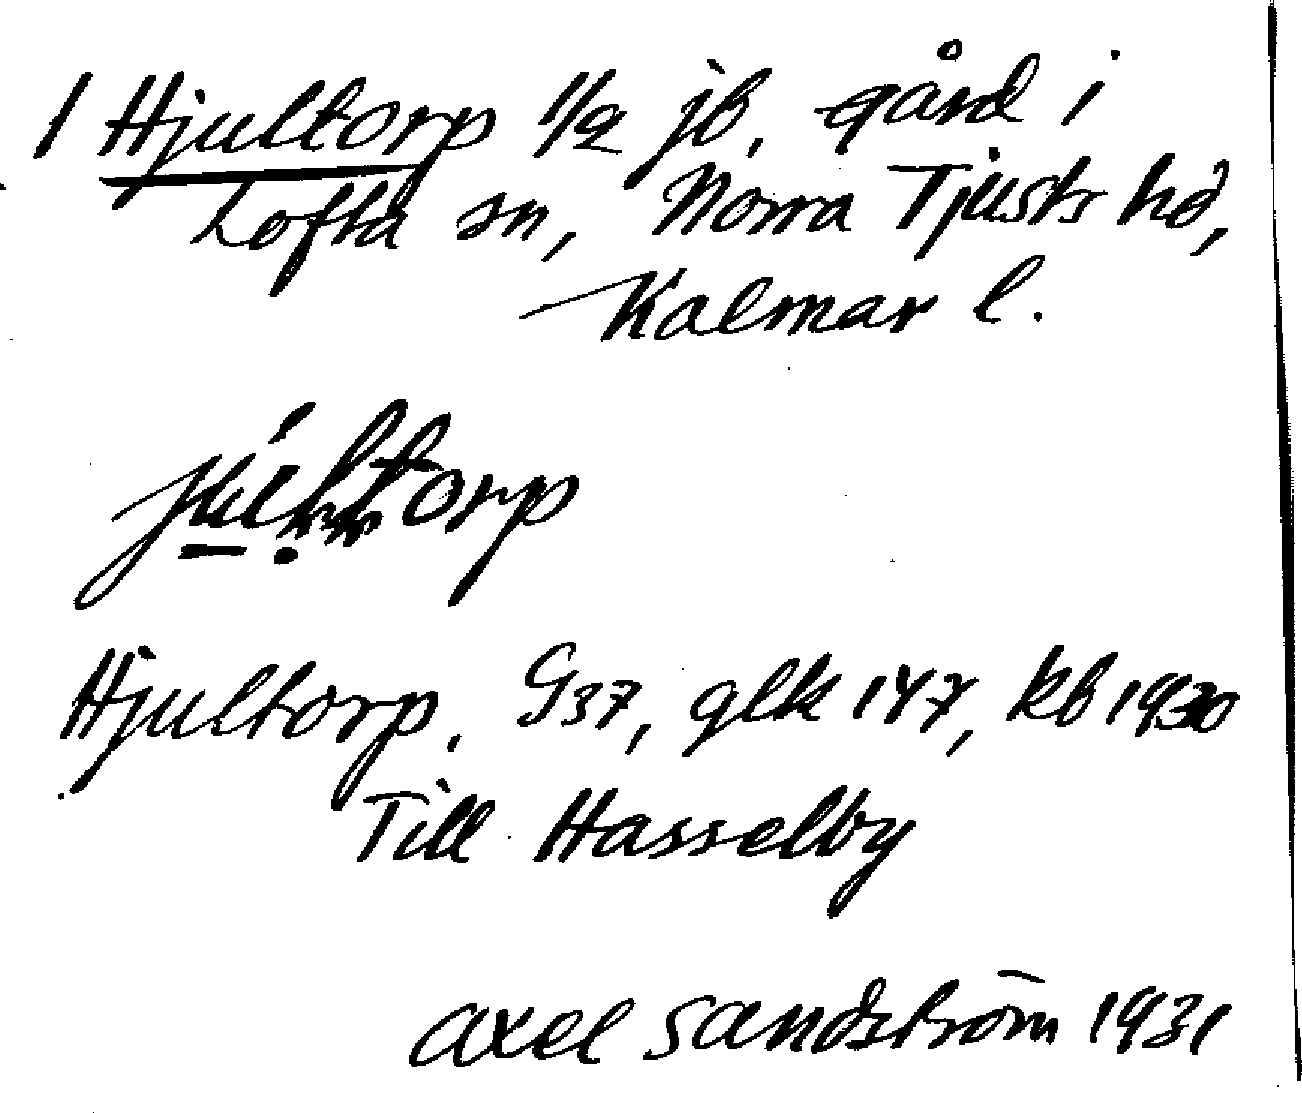 1 Hjultorp 1/2 jb, gård i
Lofta sn, Norra Tjusts hd,
Kalmar l.
júltorp
Hjultorp. G37, glk 147, kb 1930
Till Hasselby
Axel Sandström 1931